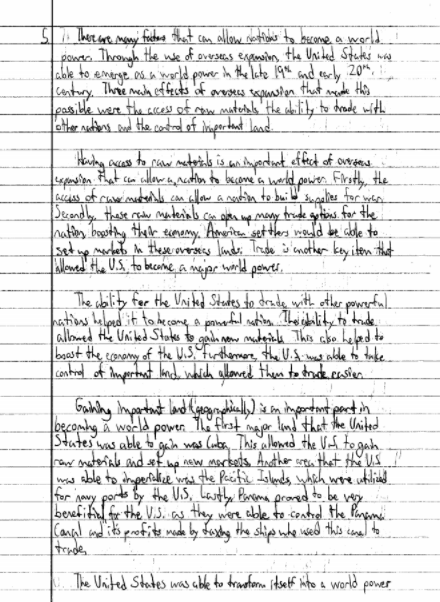 5. There are many factors that can allow nations to become a world
power. Through the use of overseas expansion, the United States was
able to emerge as a world power in the late 19th and early 20th
century. Three main effects of overseas expansion that made this
possible were the access of raw materials, the ability to trade with
other nations and the control of important land.
Having access to raw materials is an important effect of overseas
expansion that can allow a nation to become a world power. Firstly, the
access of raw materials can allow a nation to build supplies for war.
Secondly, these raw materials can open up many trade options for the
nation boosting their economy. American settlers would be able to
set up markets in these overseas lands. Trade is another key item that
allowed the U.S. to become a major world power.
The ability for the United States to trade with other powerful
nations helped it to become a powerful nation. The ability to trade
allowed the United States to gain new materials. This also helped to
boost the economy of the U.S. Furthermore, the U.S. was able to take
control of important land, which allowed them to trade easier.
Gaining important land (geographically) is an important part in
becoming a world power. The first major land that the United
States was able to gain was Cuba. This allowed the U.S. to gain
raw materials and set up new markets. Another area that the U.S.
was able to imperialize was the Pacific Islands, which were utilized
for navy ports by the U.S. Lastly, Panama proved to be very
beneficial for the U.S. as they were able to control the Panama
Canal and its profits made by taxing the ships who used this canal to
trade.
The United States was able to transform itself into a world power